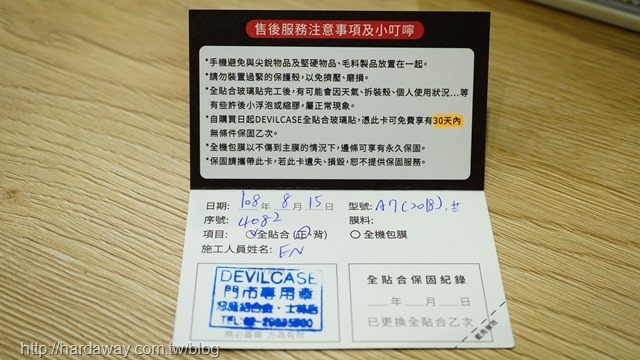 售後服務注意事項及小叮嚀
*手機避免與尖銳物品及堅硬物品、毛料製品放置在一起。
*請勿裝置過緊的保護殼，以免擠壓、磨損。
*全貼合玻璃貼完工後，有可能會因天氣、拆裝殼、個人使用狀況...等
有些許後小浮泡或縮膠，屬正常現象。
*自購買日起DEVILCASE全貼合玻璃貼，憑此卡可免費享有30天內
無條件保固乙次。
*全機包膜以不傷到主膜的情況下，邊條可享有永久保固。
*保固請攜帶此卡，若此卡遺失、損毀，恕不提供保固服務。
日期: 108 年 8 月 15 日 型號: A7(2018)
序號: 4082 膜料:
項目: 全貼合 (正、背) 全機包膜
施工人員姓名: EN
DEVILCASE
門市專用章
惡魔鋁合金・士林店
TEL:02-28835800
全貼合保固紀錄
年 月 日
已更換全貼合乙次
http://hardaway.com.tw/blog